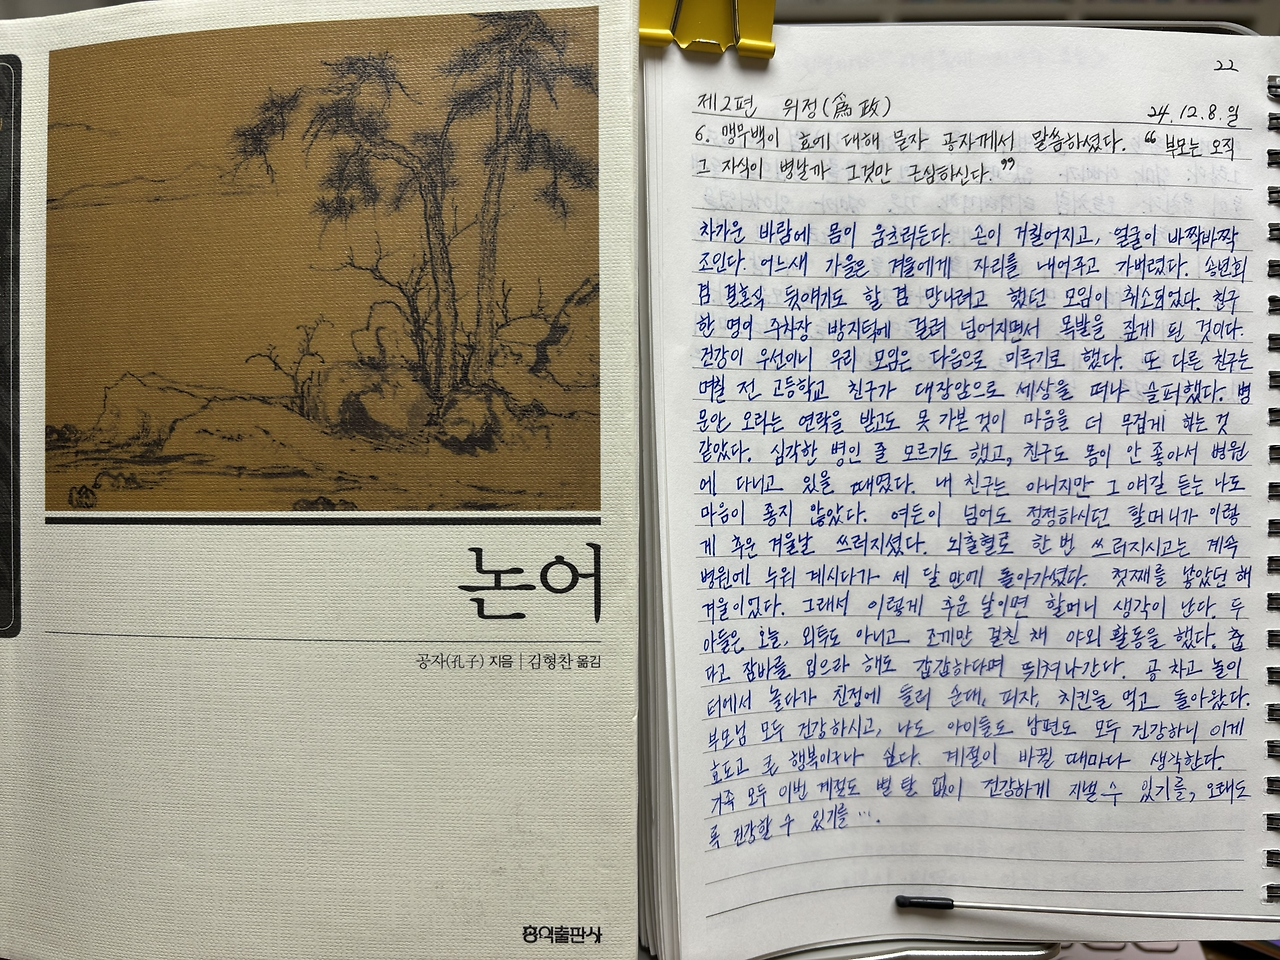 논어
공자(孔子) 지음 | 김형찬 옮김
홍익출판사
22
제2편 위정(爲政) 24.12.8.일
6. 맹무백이 효에 대해 묻자 공자께서 말씀하셨다. “부모는 오직
그 자식이 병날까 그것만 근심하신다.”
차가운 바람에 몸이 움츠러든다. 손이 거칠어지고, 얼굴이 바짝바짝
조인다. 어느새 가을은 겨울에게 자리를 내어주고 가버렸다. 송년회
겸 결혼식 뒷얘기도 할 겸 만나려고 했던 모임이 취소되었다. 친구
한 명이 주차장 방지턱에 걸려 넘어지면서 목발을 짚게 된 것이다.
건강이 우선이니 우리 모임은 다음으로 미루기로 했다. 또 다른 친구는
며칠 전 고등학교 친구가 대장암으로 세상을 떠나 슬퍼했다. 병
문안 오라는 연락을 받고도 못 가본 것이 마음을 더 무겁게 하는 것
같았다. 심각한 병인 줄 모르기도 했고, 친구도 몸이 안 좋아서 병원
에 다니고 있을 때였다. 내 친구는 아니지만 그 얘길 듣는 나도
마음이 좋지 않았다. 여든이 넘어도 정정하시던 할머니가 이렇
게 추운 겨울날 쓰러지셨다. 뇌출혈로 한 번 쓰러지시고는 계속
병원에 누워 계시다가 세 달 만에 돌아가셨다. 첫째를 낳았던 해
겨울이었다. 그래서 이렇게 추운 날이면 할머니 생각이 난다. 두
아들은 오늘, 외투도 아니고 조끼만 걸친 채 야외 활동을 했다. 춥
다고 잠바를 입으라 해도 갑갑하다며 뛰쳐나간다. 공 차고 놀이
터에서 놀다가 친정에 들러 순대, 피자, 치킨을 먹고 돌아왔다.
부모님 모두 건강하시고, 나도 아이들도 남편도 모두 건강하니 이게
효도고 큰 행복이구나 싶다. 계절이 바뀔 때마다 생각한다.
가족 모두 이번 계절도 별 탈 없이 건강하게 지낼 수 있기를, 오래도
록 건강할 수 있기를….